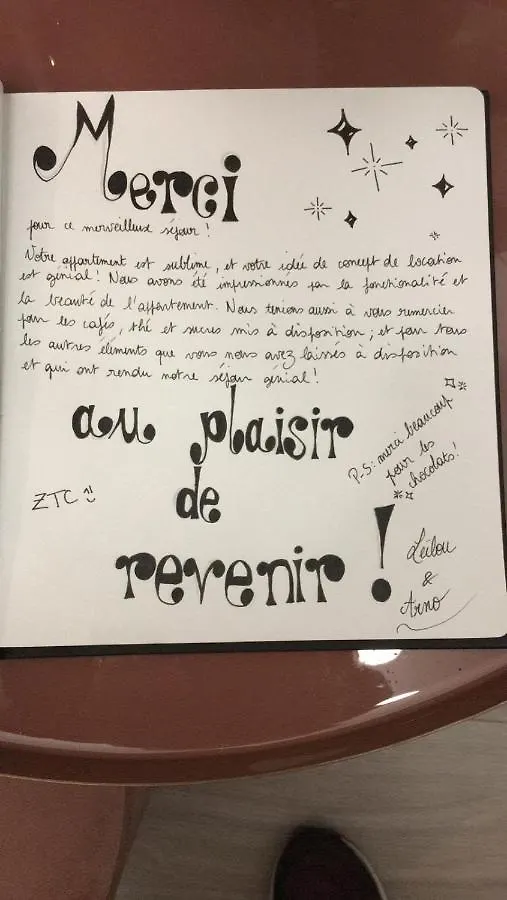 Merci
pour ce merveilleux séjour !
Votre appartement est sublime, et votre idée de concept de location
est génial ! Nous avons été impressionnés par la fonctionalité et
la beauté de l'appartement. Nous tenions aussi à vous remercier
pour les cafés, thé et sucres mis à disposition ; et pour tous
les autres éléments que vous nous avez laissés à disposition
et qui ont rendu notre séjour génial !
au plaisir
de
revenir !
P-S : merci beaucoup
pour les
chocolats !
ZTC
&
Arno